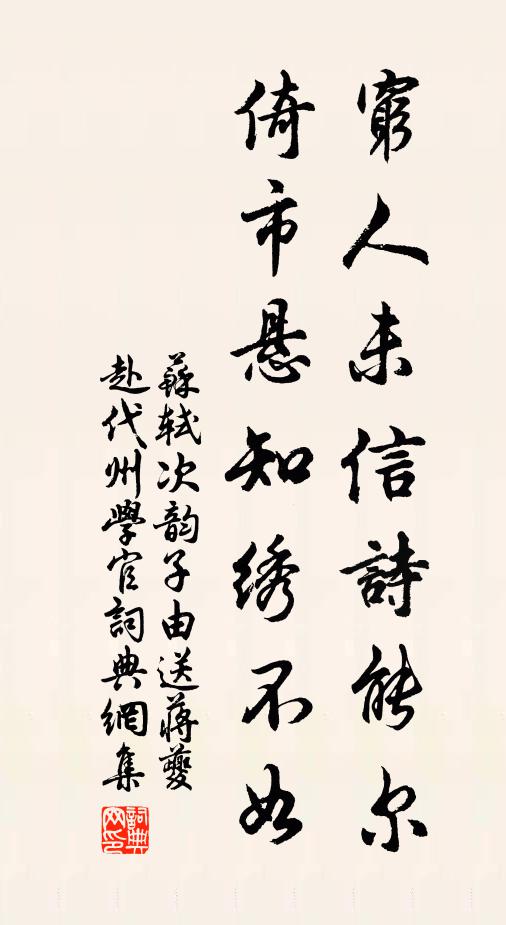 窮人未信詩能尔
倚市悬知绣不如
蘇轼次韵子由送蒋夔
赴代州學官詞典網集
詞典网印